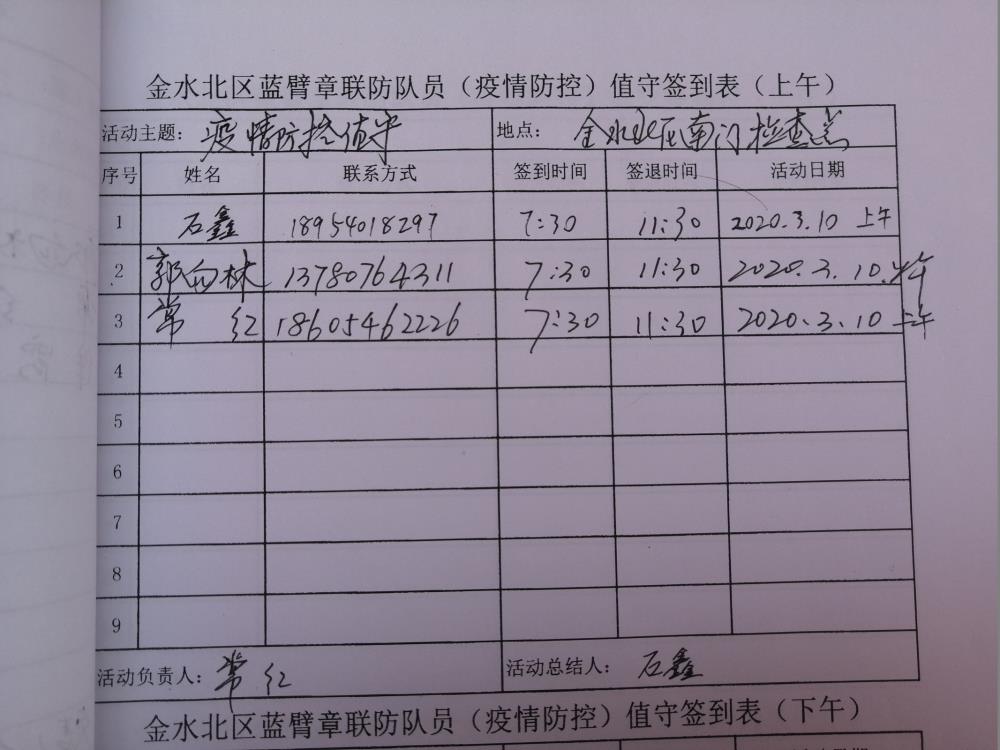 金水北区蓝臂章联防队员（疫情防控）值守签到表（上午）
活动主题：疫情防控值守 地点：金水北区南门检查点
序号 姓名 联系方式 签到时间 签退时间 活动日期
1 石鑫 18954018297 7:30 11:30 2020.3.10 上午
2 郭向林 13780764311 7:30 11:30 2020.3.10.上午
3 常红 18605462226 7:30 11:30 2020.3.10 上午
4
5
6
7
8
9
活动负责人：常红 活动总结人：石鑫
金水北区蓝臂章联防队员（疫情防控）值守签到表（下午）